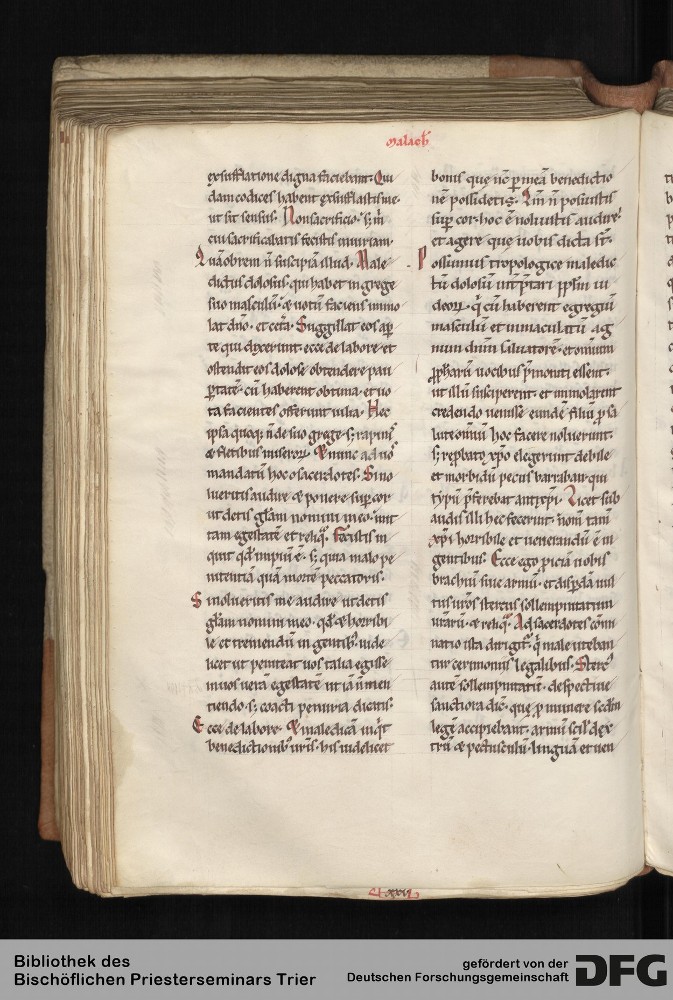 Malach̅
exsufflatione digna faciebant. Qui
dam codices habent exsufflastis me.
ut sit sensus. Non sacrificio. s; m̅
cui sacrificabatis fecistis iniuriam.
Quā obrem n̅ suscipiā illud. Male
dictus dolosus. qui habet in grege
suo masculū. & votū faciens immo
lat dn̅o. et cet̅a. Suggillat eos ap̅
te qui dixerunt. ecce de labore. et
ostendit eos dolose obtendere pau
p̅tatē. cū haberent optima. et uo
ta facientes offerunt uilia. Hec
ipsa quoq; n̅ de suo grege. s; rapinis
& fletibus miseroꝝ. Et nunc ad uos
mandatū hoc o sacerdotes. Si no
lueritis audire & ponere sup̅ cor
ut detis gl̅am nomini meo. mit
tam egestatē et reliq̅. Fecistis in
quit qd̅ impiū ē. s; quia malo pe
nitentiā quā mortē peccatoris.
Si nolueritis me audire ut detis
gl̅am nomini meo. qd̅ & horribi
le et tremendū in gentib; uide
licet ut peniteat uos talia egisse
in uos uerā egestatē ut iā n̅ men
tiendo. s; coacti penuria dicatis.
Ecce de labore. Et maledicā inq̅t
benedictionib; ur̅is. his uidelicet
bonis que nc̅ p̅ meā benedictio
nē possidetis. Qm̅ n̅ posuistis
sup̅ cor. hoc ē noluistis audire
et agere que uobis dicta st̅.
Possumus tropologice maledic
tū dolosū int̅p̅tari pp̅lm iu
deoꝝ. q̅ cū haberent egregiū
masculū et immaculatū ag
num dnm̅ saluatorē. et omnium
ꝓph̅arū uocibus p̅moniti essent.
ut illū susciperent. et immolarent
credendo uenisse eundē filiū p̅ sa
lute omniū hoc facere noluerunt.
s; reprobato xp̅o elegerunt debile
et morbidū pecus barraban qui
typū p̅ferebat antixp̅i. Licet sub
audis illi hec fecerint. nom̅ tam̅
xp̅i horribile et uenerandū ē in
gentibus. Ecce ego ꝓiciā uobis
brachiū siue armū. et disp̅dā uul
tus uros stercus sollempnitatum
urarū. & reliq̅. Ad sacerdotes com̅i
natio ista dirigit̅. q̅ male uteban
tur cerimoniis legalibus. Stercus
autē sollempnitatū. despective
sanctiora dic̅. que ꝓ munere sc̅dm
legē accipiebant. armū scil. dex
trū & pectusculū. linguā et uen
xxvi
Bibliothek des
Bischöflichen Priesterseminars Trier
gefördert von der
Deutschen Forschungsgemeinschaft
DFG